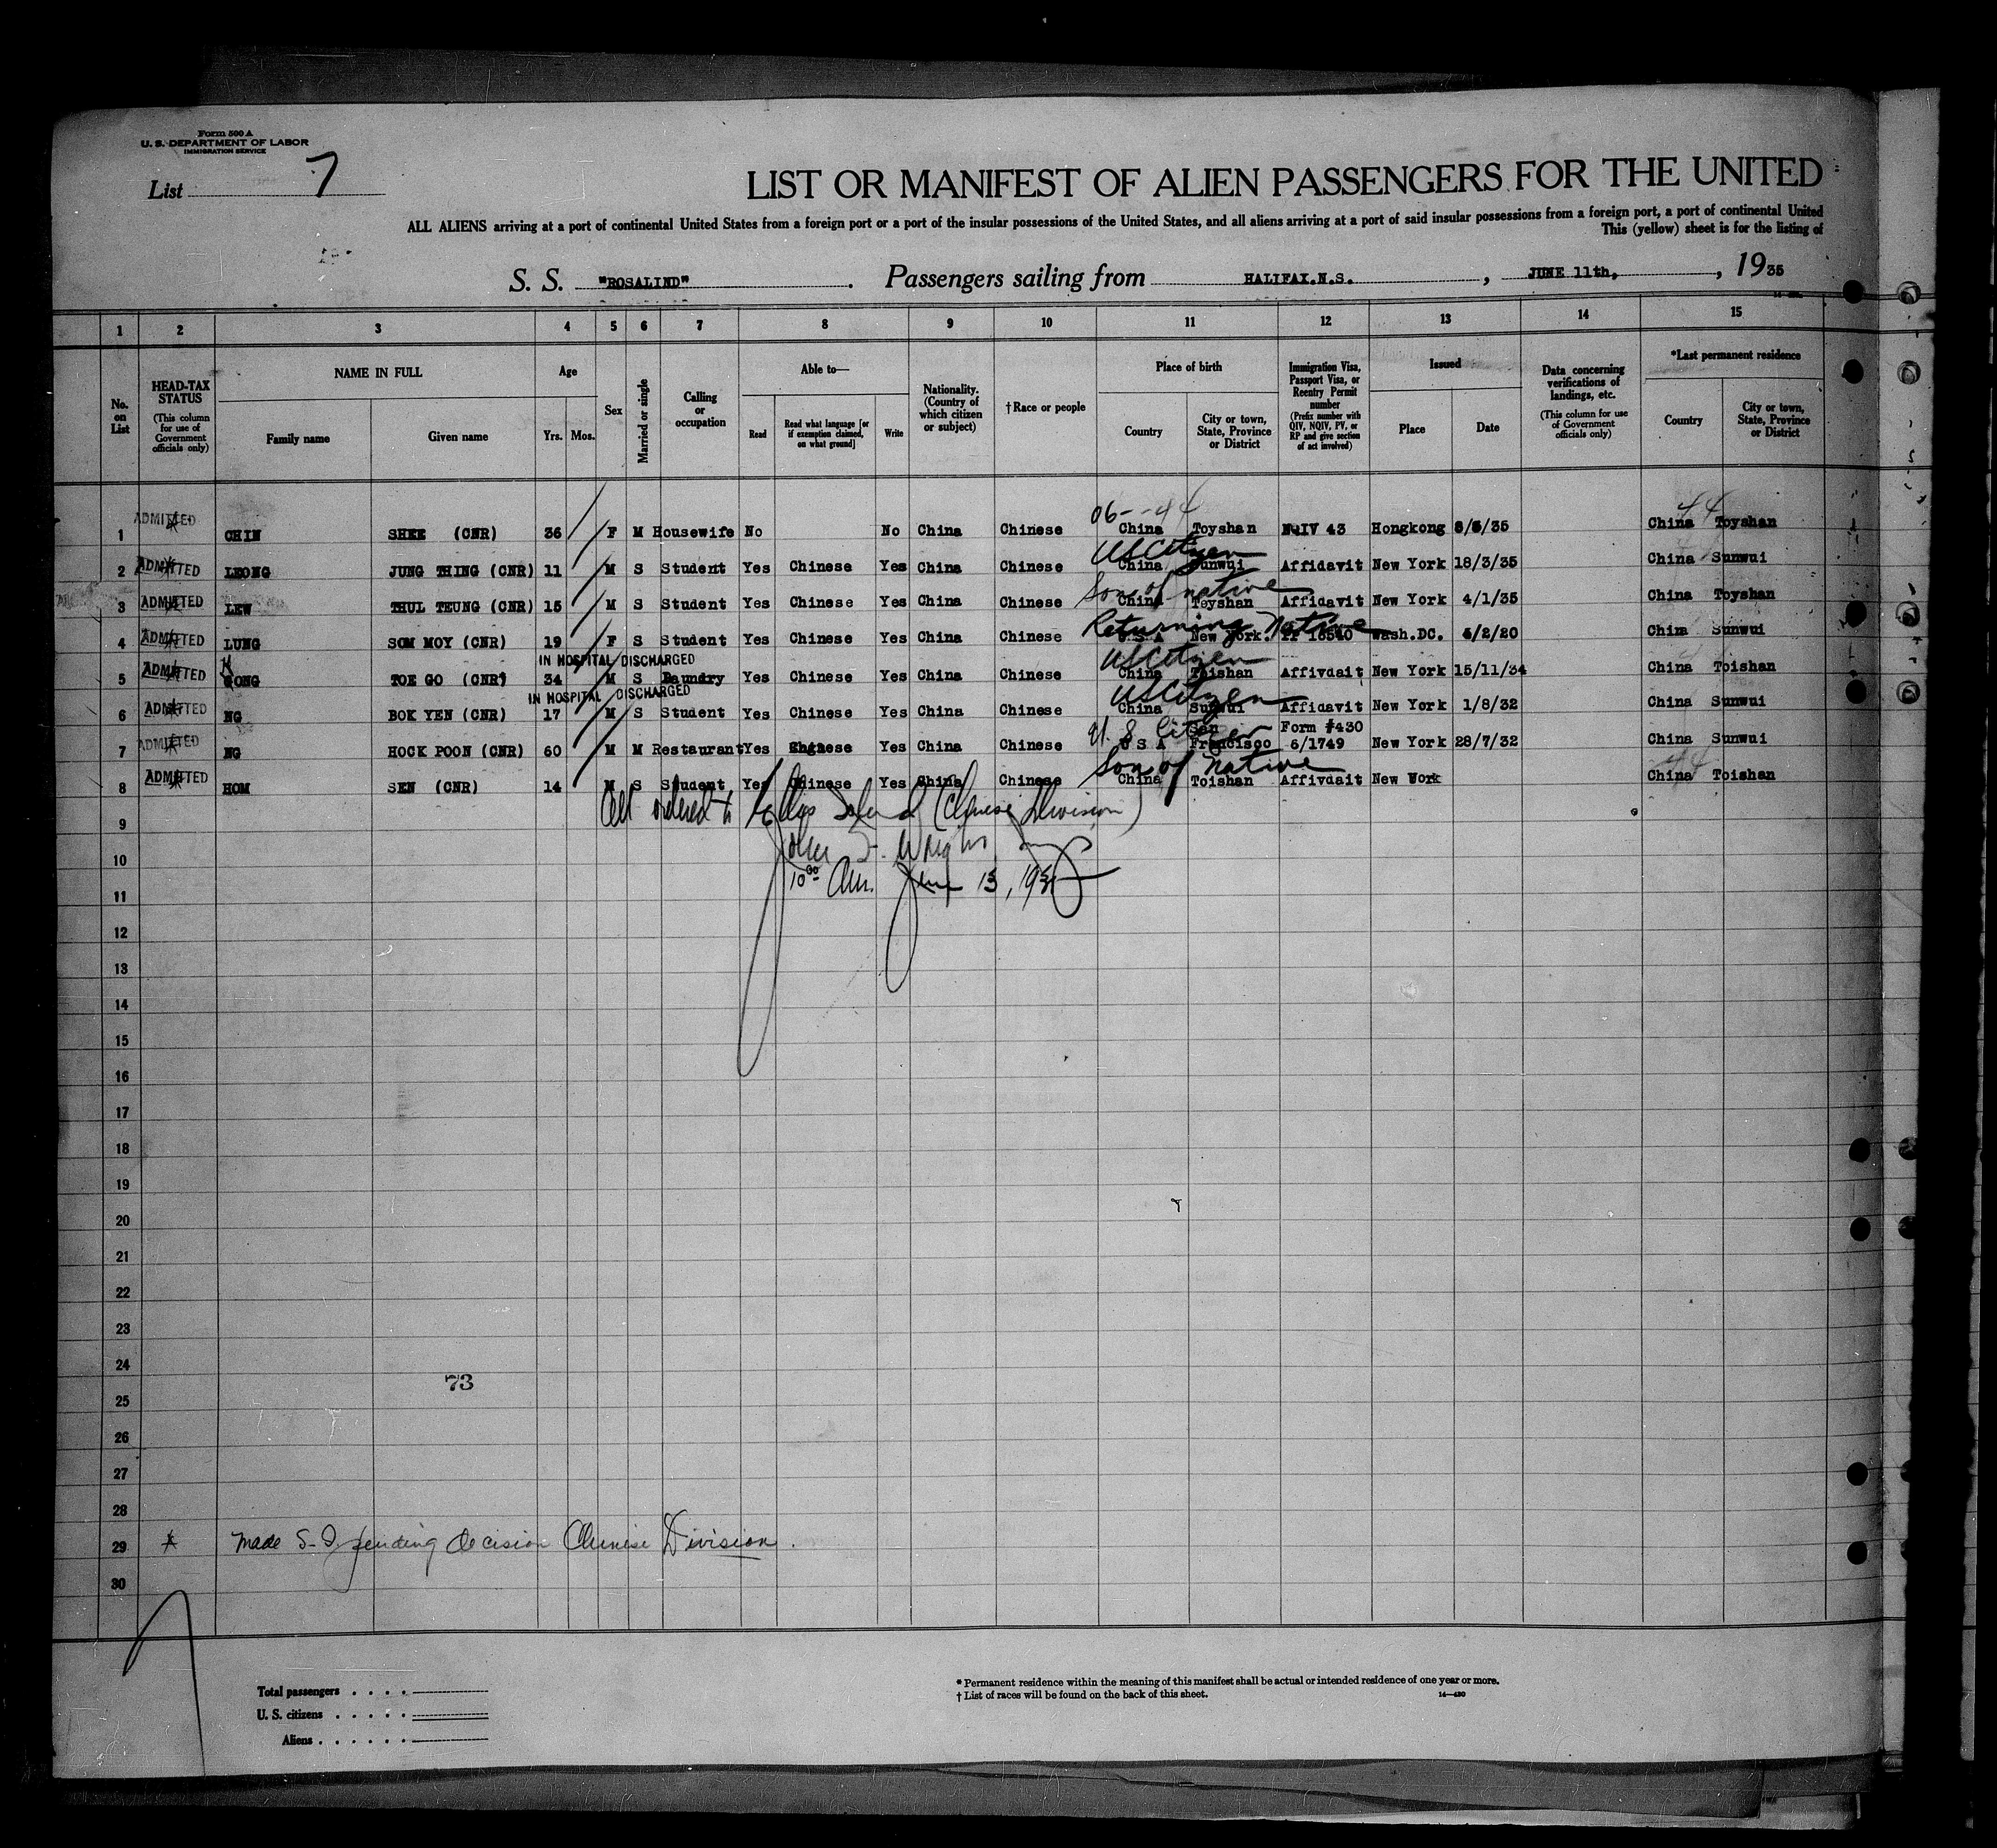 Form 500 A
U. S. DEPARTMENT OF LABOR
IMMIGRATION SERVICE
List 7
LIST OR MANIFEST OF ALIEN PASSENGERS FOR THE UNITED
ALL ALIENS arriving at a port of continental United States from a foreign port or a port of the insular possessions of the United States, and all aliens arriving at a port of said insular possessions from a foreign port, a port of continental United
This (yellow) sheet is for the listing of
S. S. "ROSALIND" . Passengers sailing from HALIFAX.N.S. , JUNE 11th, , 1935
1 2 3 4 5 6 7 8 9 10 11 12 13 14 15
No. on List
HEAD-TAX STATUS (This column for use of Government officials only)
NAME IN FULL
Family name
Given name
Age
Yrs.
Mos.
Sex
Married or single
Calling or occupation
Able to—
Read
Read what language [or if exemption claimed, on what ground]
Write
Nationality. (Country of which citizen or subject)
†Race or people
Place of birth
Country
City or town, State, Province or District
Immigration Visa, Passport Visa, or Reentry Permit number (Prefix number with QIV, NQIV, PV, or RP and give section of act involved)
Issued
Place
Date
Data concerning verifications of landings, etc. (This column for use of Government officials only)
*Last permanent residence
Country
City or town, State, Province or District
06--44 44
1 ADMITTED CHIN SHEE (CNR) 36 F M Housewife No No China Chinese China Toyshan NQIV 43 Hongkong China Toyshan
US Citizen
2 ADMITTED LEONG JUNG THING (CNR) 11 M S Student Yes Chinese Yes China Chinese China Sunwui Affidavit New York 18/3/35 China Sunwui
Son of native
3 ADMITTED LEW THUL TEUNG (CNR) 15 M S Student Yes Chinese Yes China Chinese China Toyshan Affidavit New York 4/1/35 China Toyshan
Returning Native
4 ADMITTED LUNG SOM MOY (CNR) 19 F S Student Yes Chinese Yes China Chinese U S A New York. 16540 Wash.DC. China Sunwui
IN HOSPITAL / DISCHARGED US Citizen
5 ADMITTED TOE GO (CNR) 34 M S Laundry Yes Chinese Yes China Chinese China Toishan Affivdait New York 15/11/34 China Toishan
IN HOSPITAL DISCHARGED US Citizen
6 ADMITTED NG BOK YEN (CNR) 17 M S Student Yes Chinese Yes China Chinese China Sunwui Affidavit New York 1/8/32 China Sunwui
U. S Citizen San Form #430
7 ADMITTED NG HOCK POON (CNR) 60 M M Restaurant Yes Chinese Yes China Chinese U S A Francisco 6/1749 New York 28/7/32 China Sunwui
Son of Native 44
8 ADMITTED HOM SEN (CNR) 14 M S Student Yes Chinese Yes China Chinese China Toishan Affivdait New Work China Toishan
All ordered to Ellis Island (Chinese Division)
9
John J. Wright
10
10 00 Am. June 13, 1935
11
12
13
14
15
16
17
18
19
20
21
22
23
24
73
25
26
27
28
29 * Made S-I pending decision Chinese Division.
30
Total passengers . . . .
U. S. citizens . . . . .
Aliens . . . . . .
* Permanent residence within the meaning of this manifest shall be actual or intended residence of one year or more.
† List of races will be found on the back of this sheet. 14—430